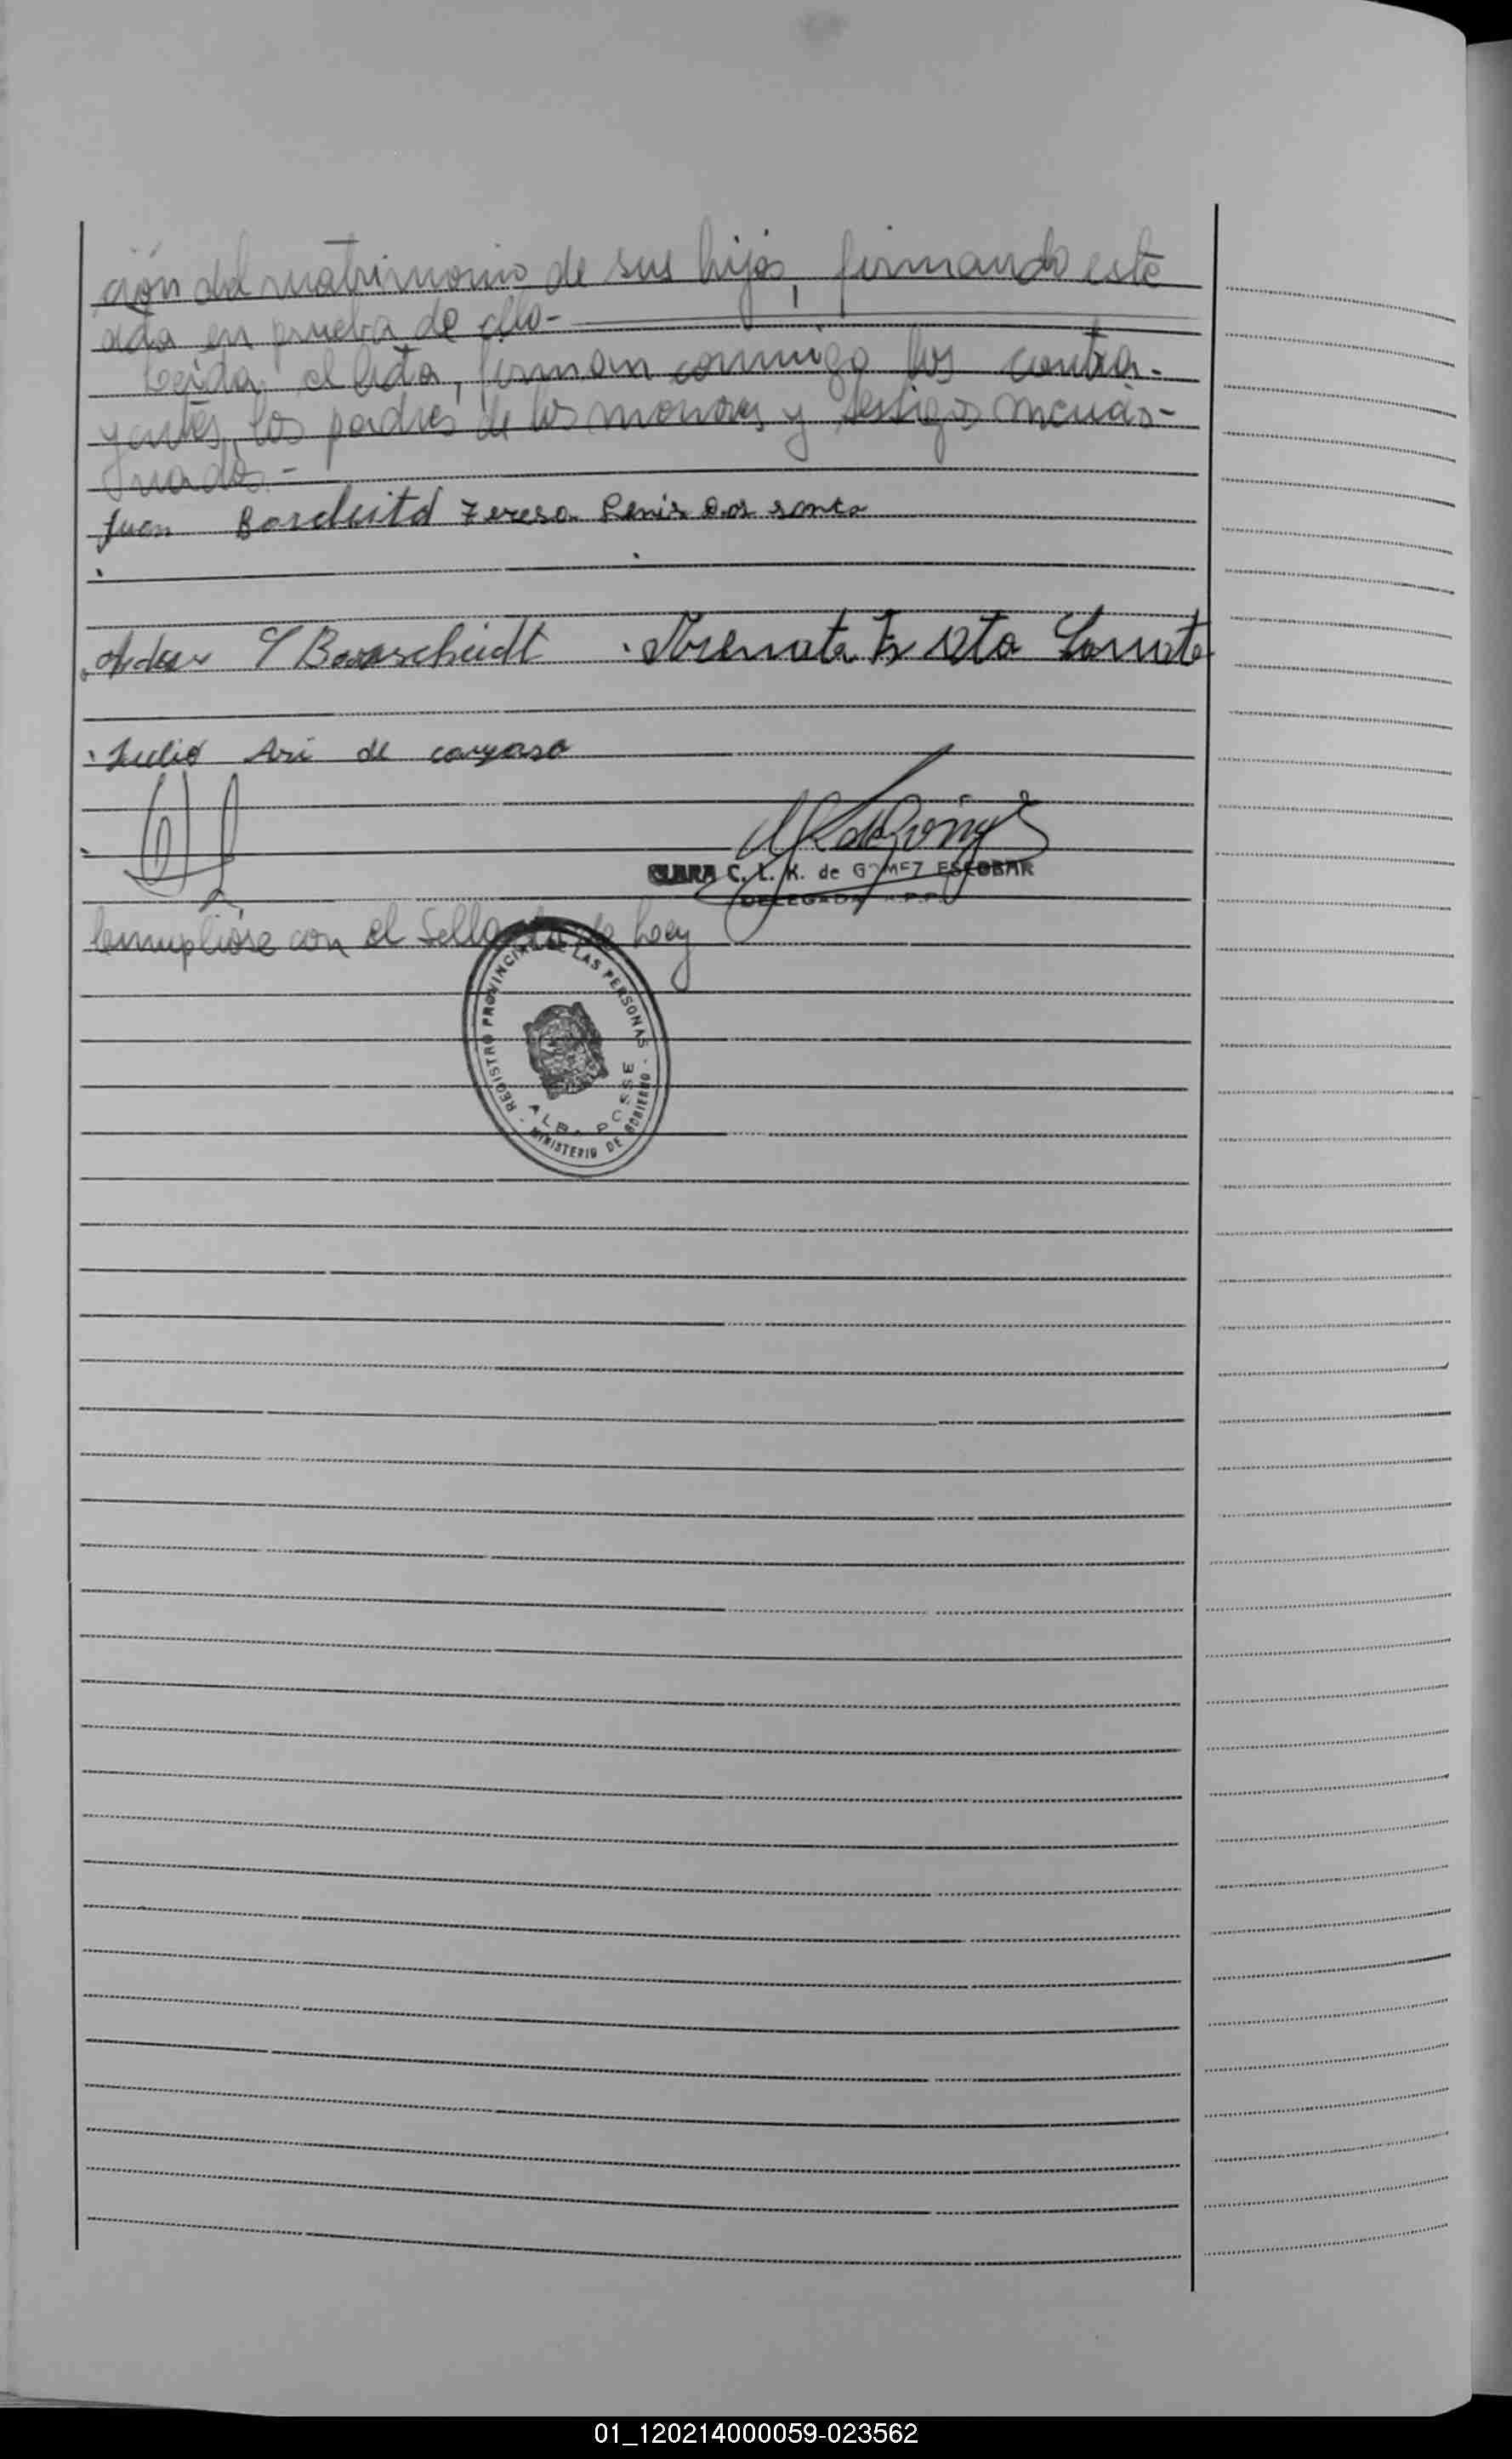 ción del matrimonio de sus hijos, firmando este
acta en prueba de ello.-
Leida el Acta, firman conmigo los contra-
yentes, los padres de los menores y testigos mencio-
nados.-
Juan Bardeitd Teresa Lenir Dos santo
S Borascheidt
Julio Ari de
CLARA C. L. K. de GOMEZ ESCOBAR
DELEGADA R.P.P.
Cumplióse con el Sellado de Ley
REGISTRO PROVINCIAL DE LAS PERSONAS
ALBA POSSE
MINISTERIO DE GOBIERNO
01_120214000059-023562